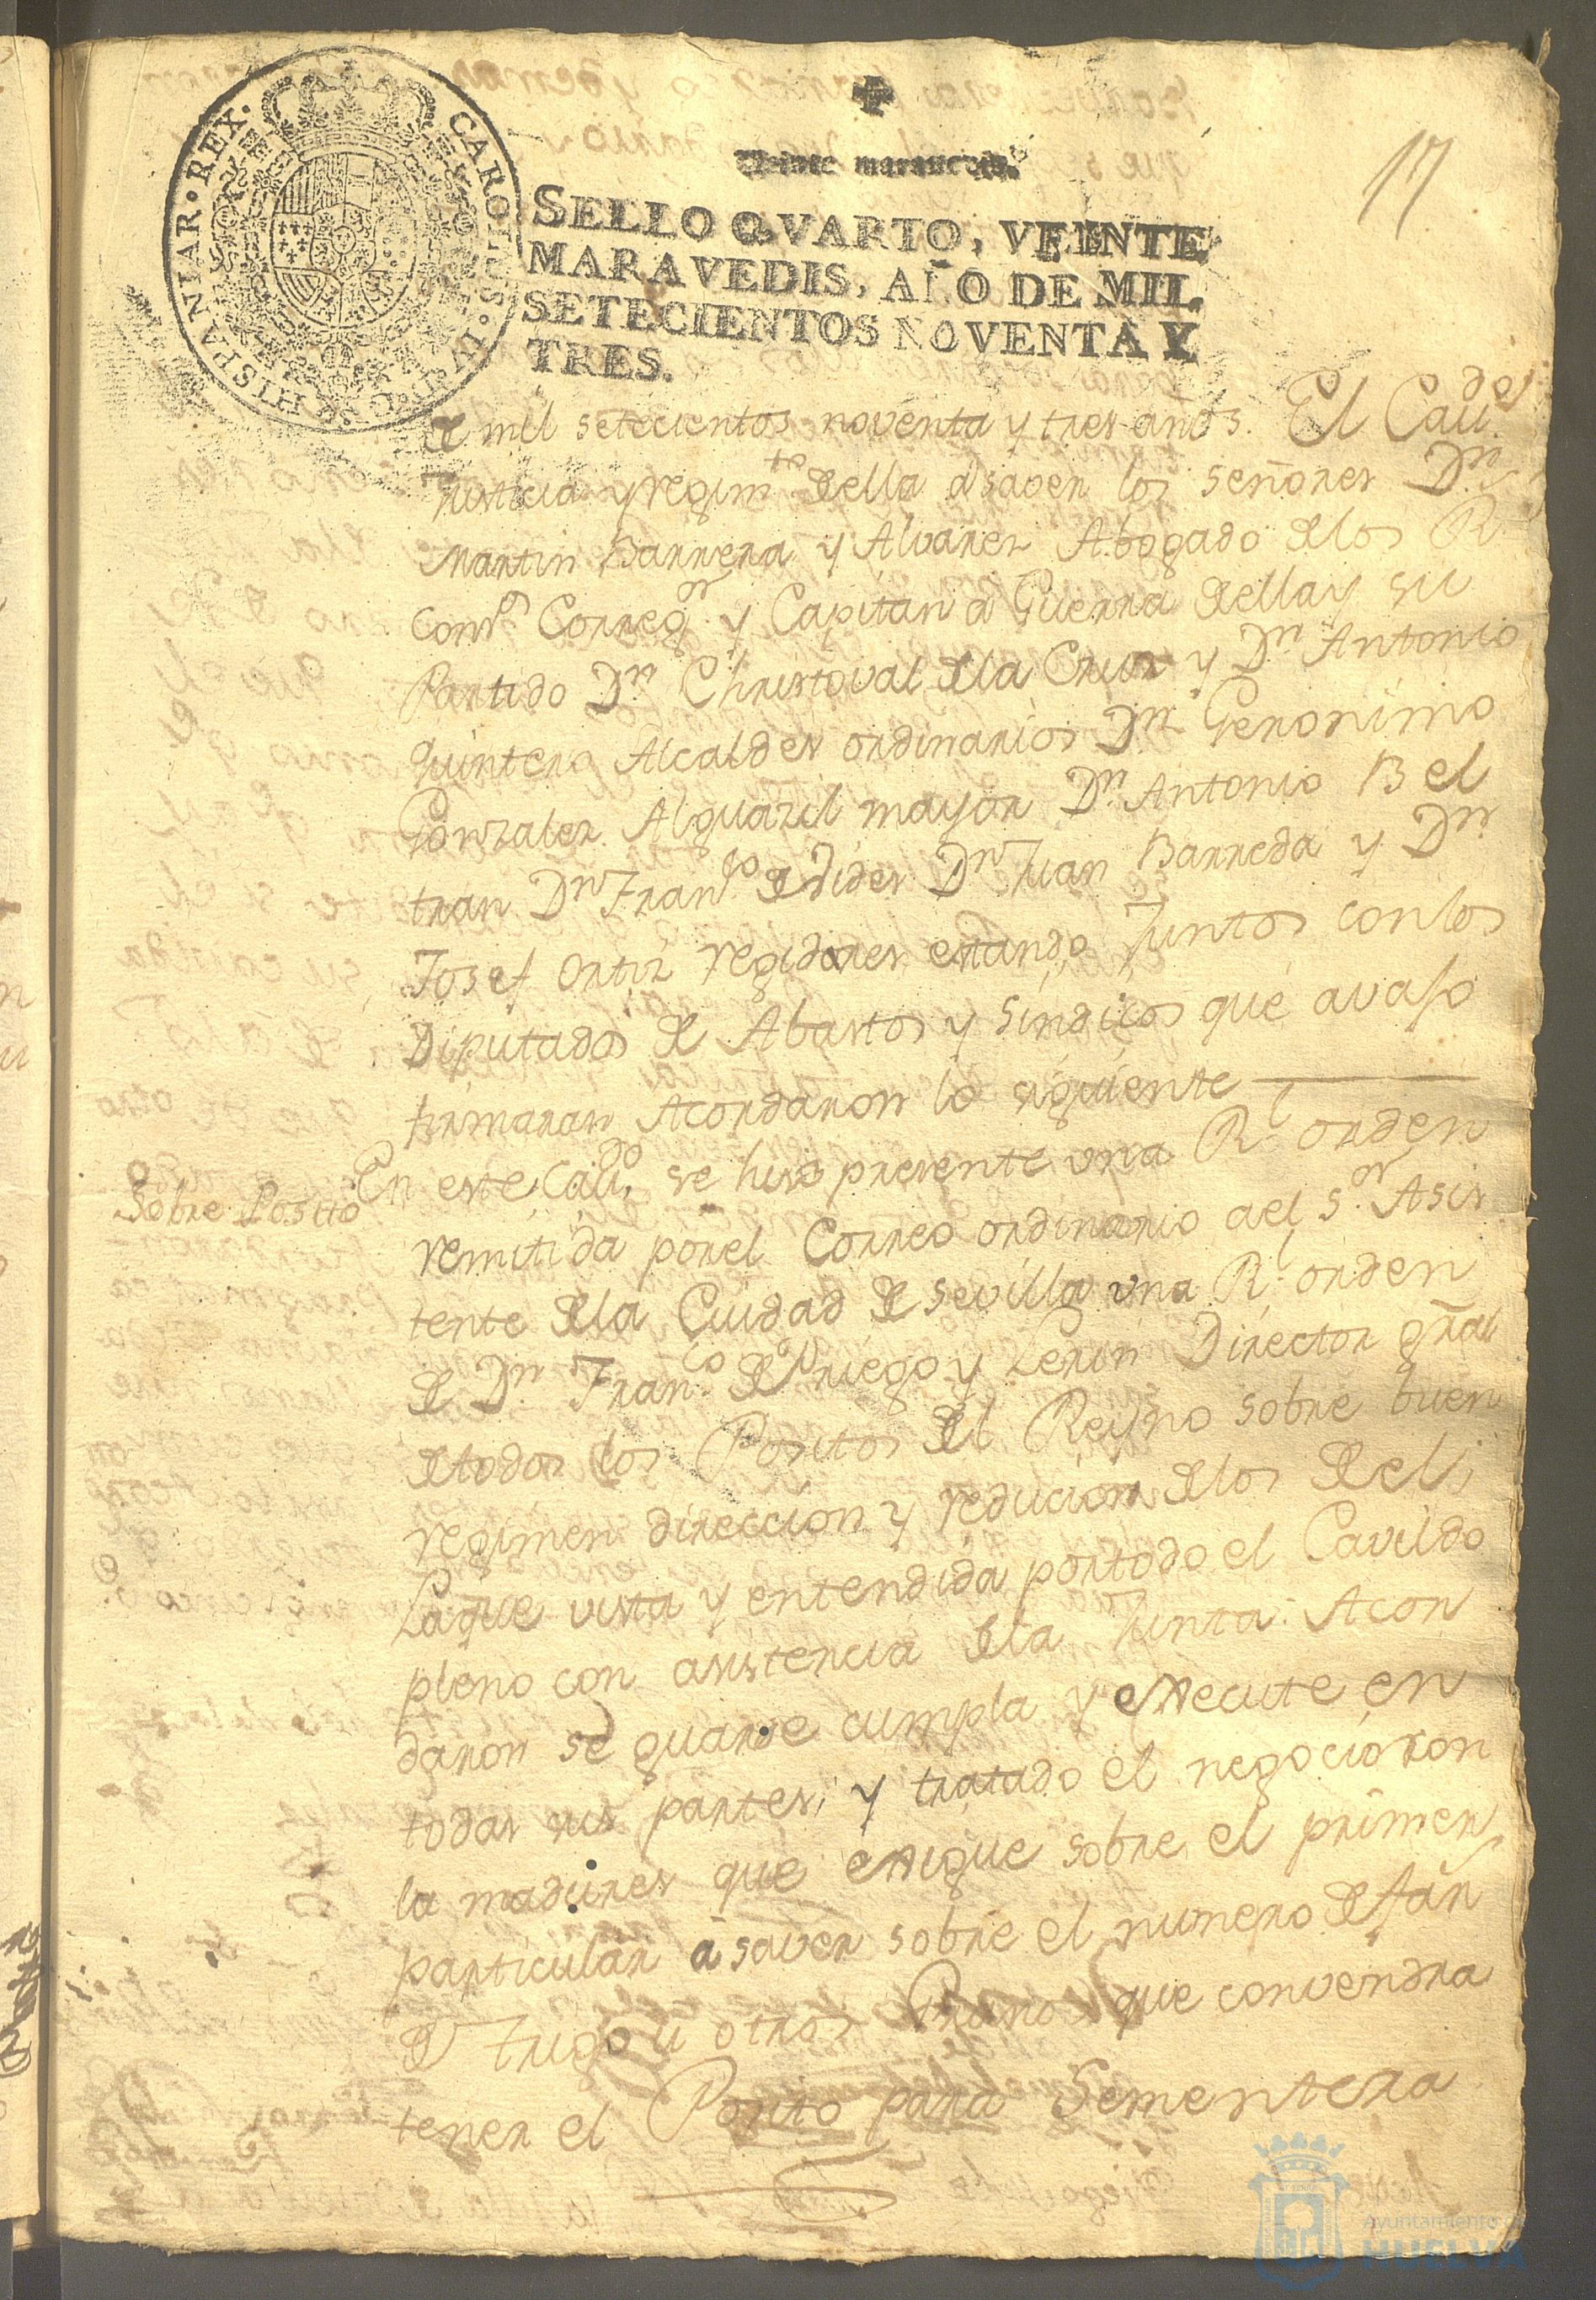 CAROLUS·IV·D·G·HISPANIAR·REX·
Veinte maravedis.
17
SELLO QVARTO, VEINTE
MARAVEDIS, AÑO DE MIL
SETECIENTOS NOVENTA Y
TRES.
de mil setecientos noventa y tres años. El Cau.do
Justicia y regim.to della a saver los señores D.n
Martin Barrera y Alvarez Abogado delos R.
Cons.s Correg.or y Capitan a Guerra della y su
Partido D.n Christoval dela Cruz y D.n Antonio
Quintero Alcaldes ordinarios D.n Geronimo
Gonzalez Alguazil mayor D.n Antonio Bel
tran D.n Fran.co de D.n Juan Barreda y D.n
Josef Ortiz regidores estando Juntos conlos
Diputados de Abastos y Sindicos que avaso
firmaran Acordaron lo siguiente
Sobre Posito
En este Cau.do se hiso presente una R.l orden
remitida porel Correo ordinario del S.or Asis
tente dela Ciudad de Sevilla una R.l orden
de D.n Fran.co de Priego y Lerin Director gñal
detodos los Positos del Reyno sobre buen
regimen direccion y reducion delos del;
Laque vista y entendida portodo el Cavildo
pleno con asistencia dela Junta: Acor
daron se guarde cumpla y execute en
todas sus partes; y tratado el negocio con
la madures que exigue sobre el primer
particular a saver sobre el numero de fan
D Trigo u otros Granos que convendra
tener el Posito para Sementera
Ayuntamiento de
HUELVA